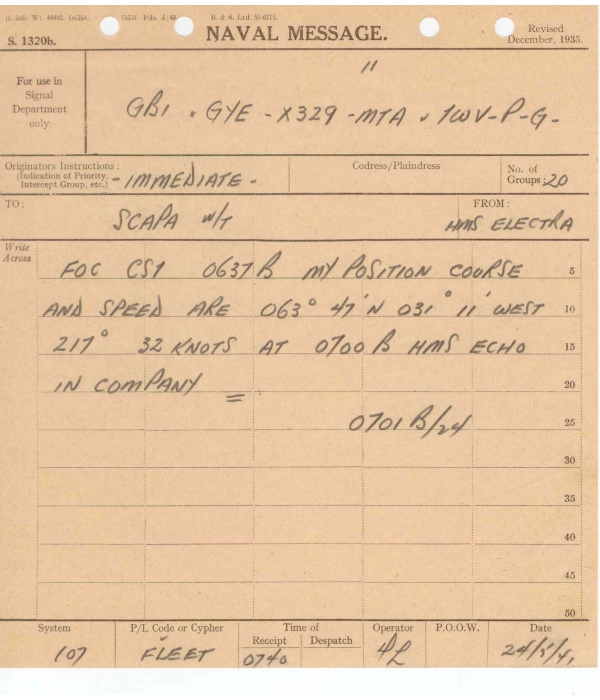 NAVAL MESSAGE.
S. 1320b.
Revised
December, 1935.
For use in
Signal
Department
only
"
GB1 . GYE - X329 - MTA . 1WV - P - G -
Originators Instructions :
(Indication of Priority,
Intercept Group, etc.) - IMMEDIATE -
Codress/Plaindress
No. of
Groups: 20
TO:
SCAPA W/T
FROM:
HMS ELECTRA
Write
Across
FOC CS1 0637 B MY POSITION COURSE 5
AND SPEED ARE 063° 47' N 031° 11' WEST 10
217° 32 KNOTS AT 0700 B HMS ECHO 15
IN COMPANY = 20
0701 B/24 25
30
35
40
45
50
System
107
P/L Code or Cypher
FLEET
Time of
Receipt Despatch
0740
Operator
P.O.O.W.
Date
24/5/41